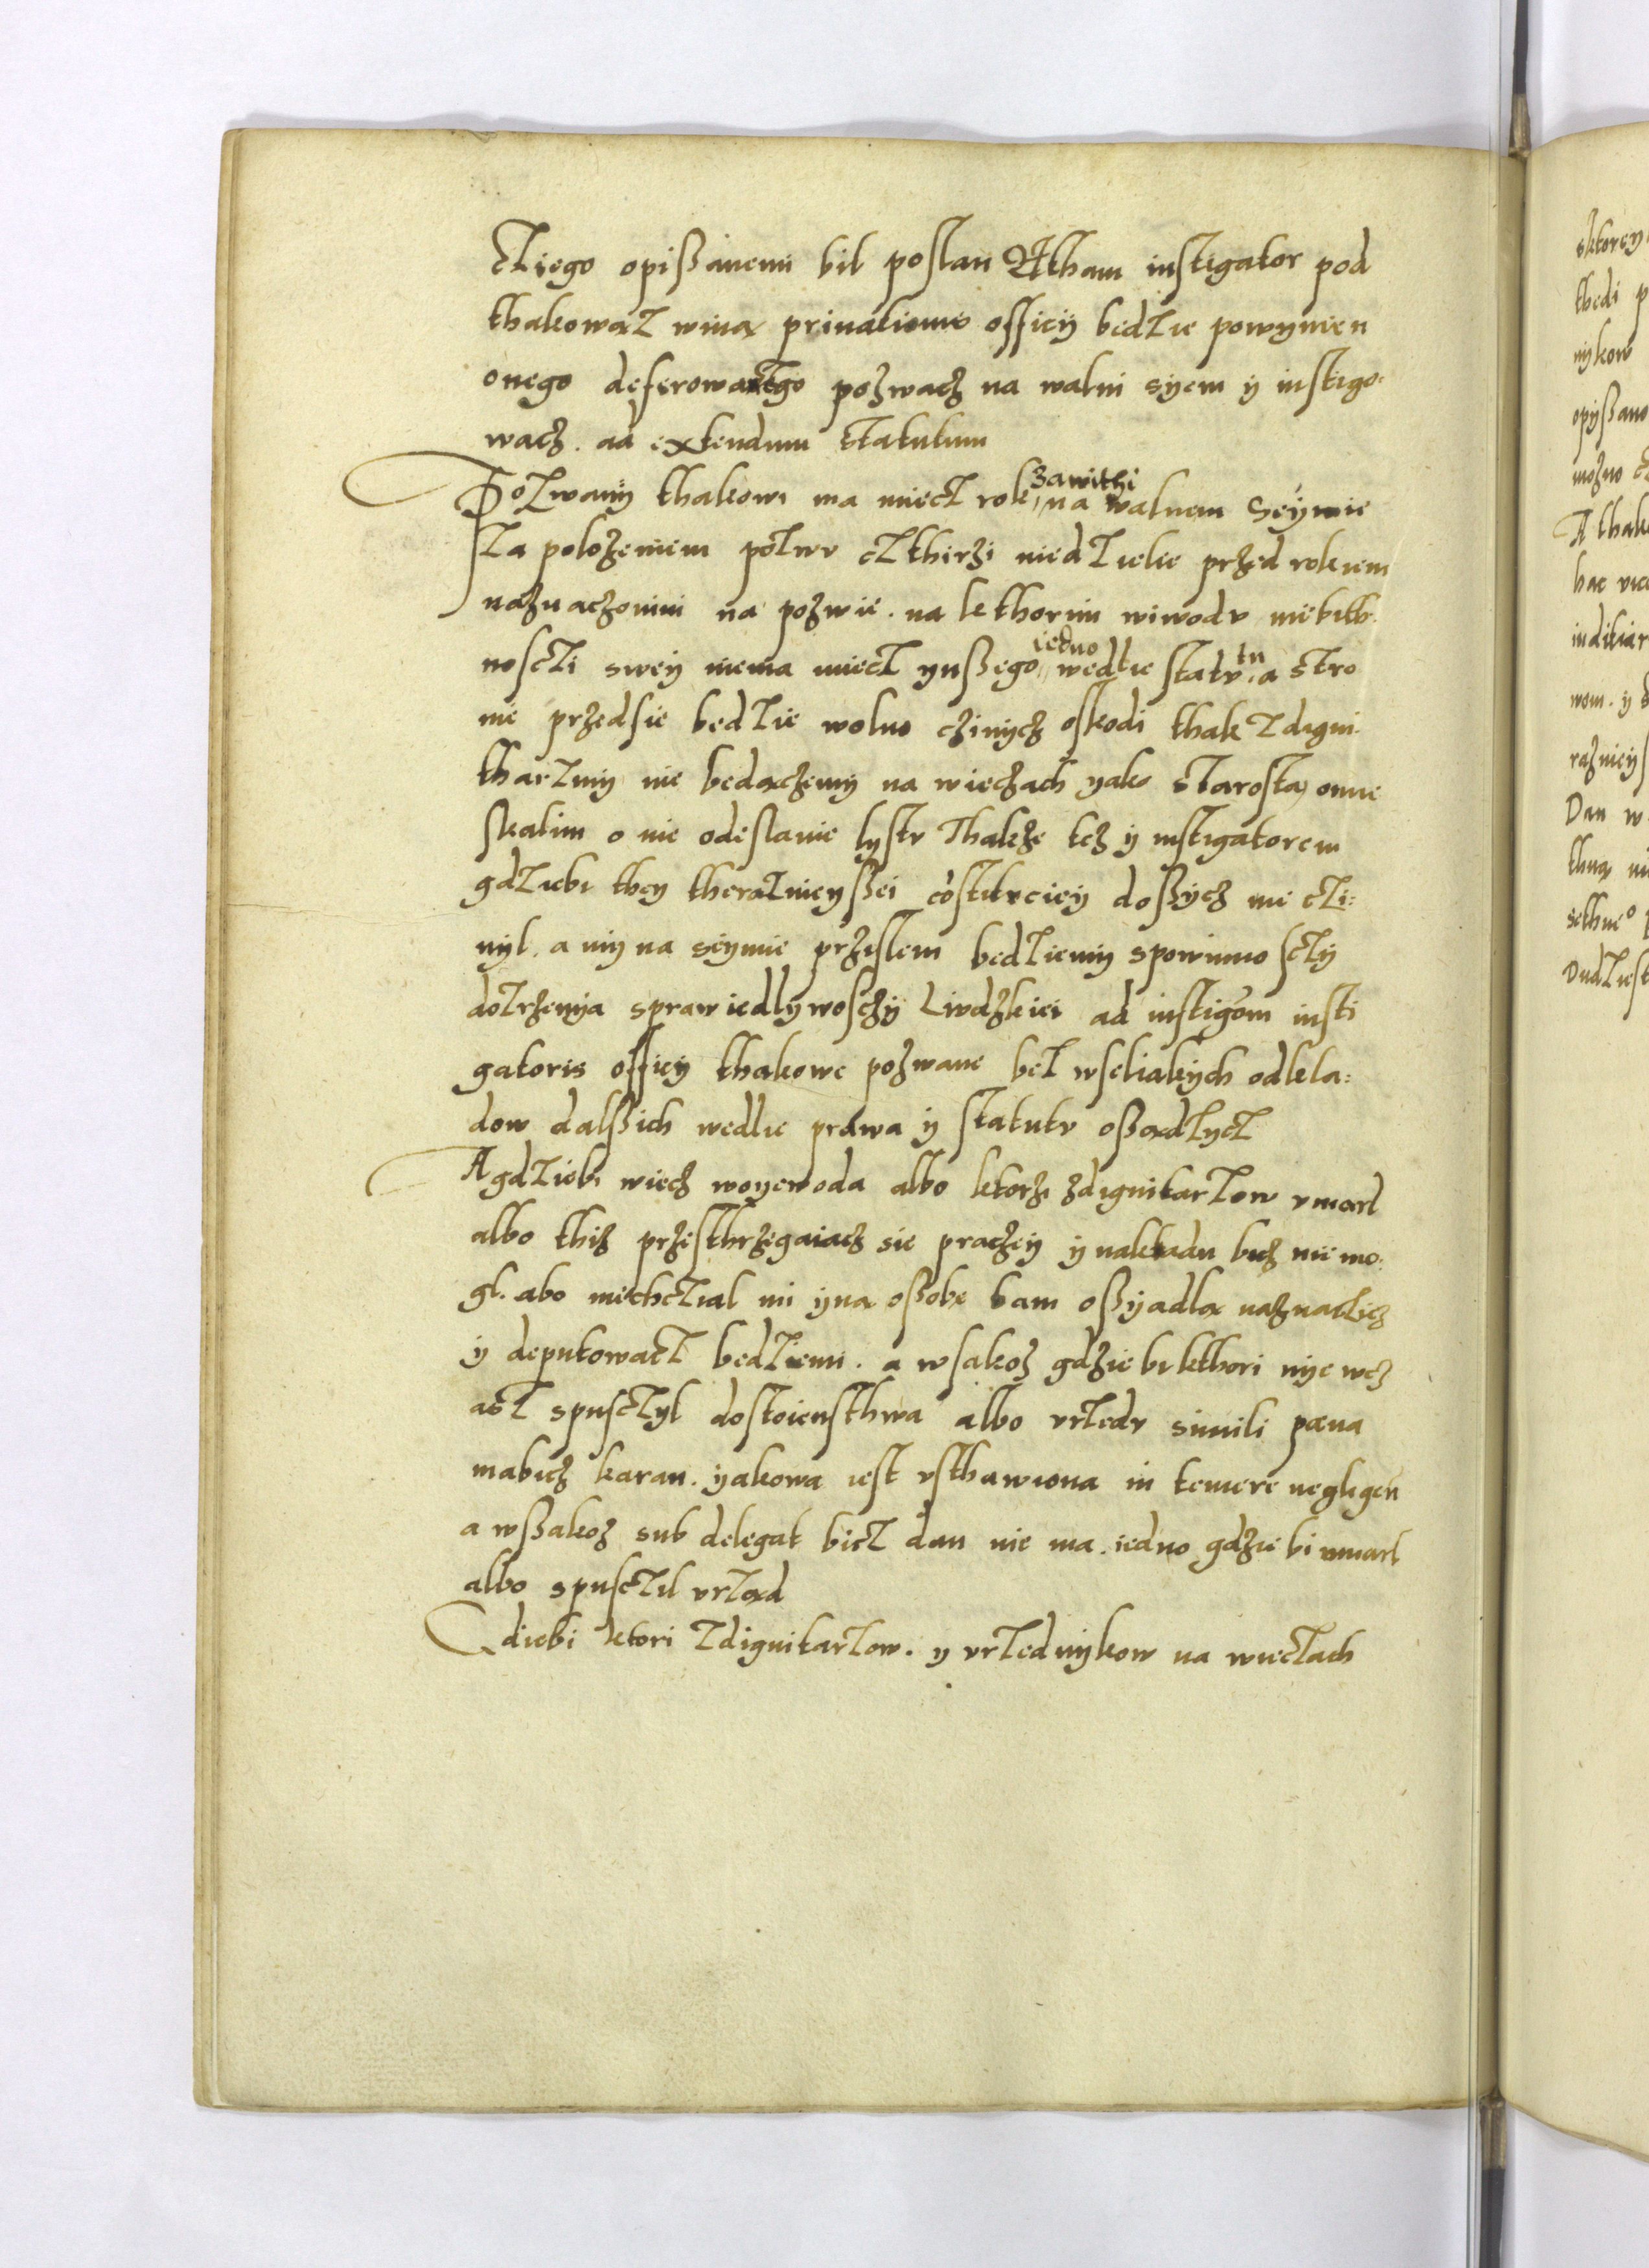 cziego opißanemi bil poslan Atham instigator pod
thakowąz winą privationis officij bedzie powynien
onego deferowanego pozwacz na walni syem ÿ instigo-
wacz. ad extendum statutum
Pozwaniÿ thakowi ma miecz rok zawithi na walnem Seÿmie
za polozeniem pozwv cztherzi niedzielie przed rokiem
naznaczonim na pozwie. na kthorim wiwodv niebitt-
nosczi sweÿ niema miecz ynßego iedno wedlie statvtu a stro
nie przedsie bedzie wolno czinÿcz oskodi thak z digni-
tharzmÿ nie bedączemÿ na wieczach yako starostą omie
skalim o nie odeslanie lÿstv Thakze tez ÿ instigatorem
gdziebi theÿ therazniejßei cöstitvcieÿ doßÿcz nie czi-
nÿl. a mÿ na seÿmie przislem bedziemÿ spowinnosczÿ
dozrzenÿa sprawiedlÿwosczÿ Livdzkiei ad instigöm insti
gatoris officÿ thakowe pozwane bez wseliakÿch odkla-
dow dalßich wedlie prawa ÿ statutv oßądzÿcz
A gdziebi wiecz woyewoda albo ktorzi zdignitarzow vmarl
albo thiz przesthrzegaiacz sie praczeÿ ÿ nakladu bicz nie mo-
gl. abo niechczial mi ÿną oßobe tam oßÿadlą naznacziċz
ÿ deputowacz bedziemi. a wsakoz gdzie bi kthori nÿe wcz
acz spusczÿl dostoiensthwa albo vrzedv simili pæna
mabicz karan. ÿakowa iest vsthawiona in temere negligen
a wßakoz sub delegat bicz dan nie ma. iedno gdzie bi vmarl
albo spusczil vrząd
Gdiebi ktori zdignitarzow. y vrzednÿkow na wieczach